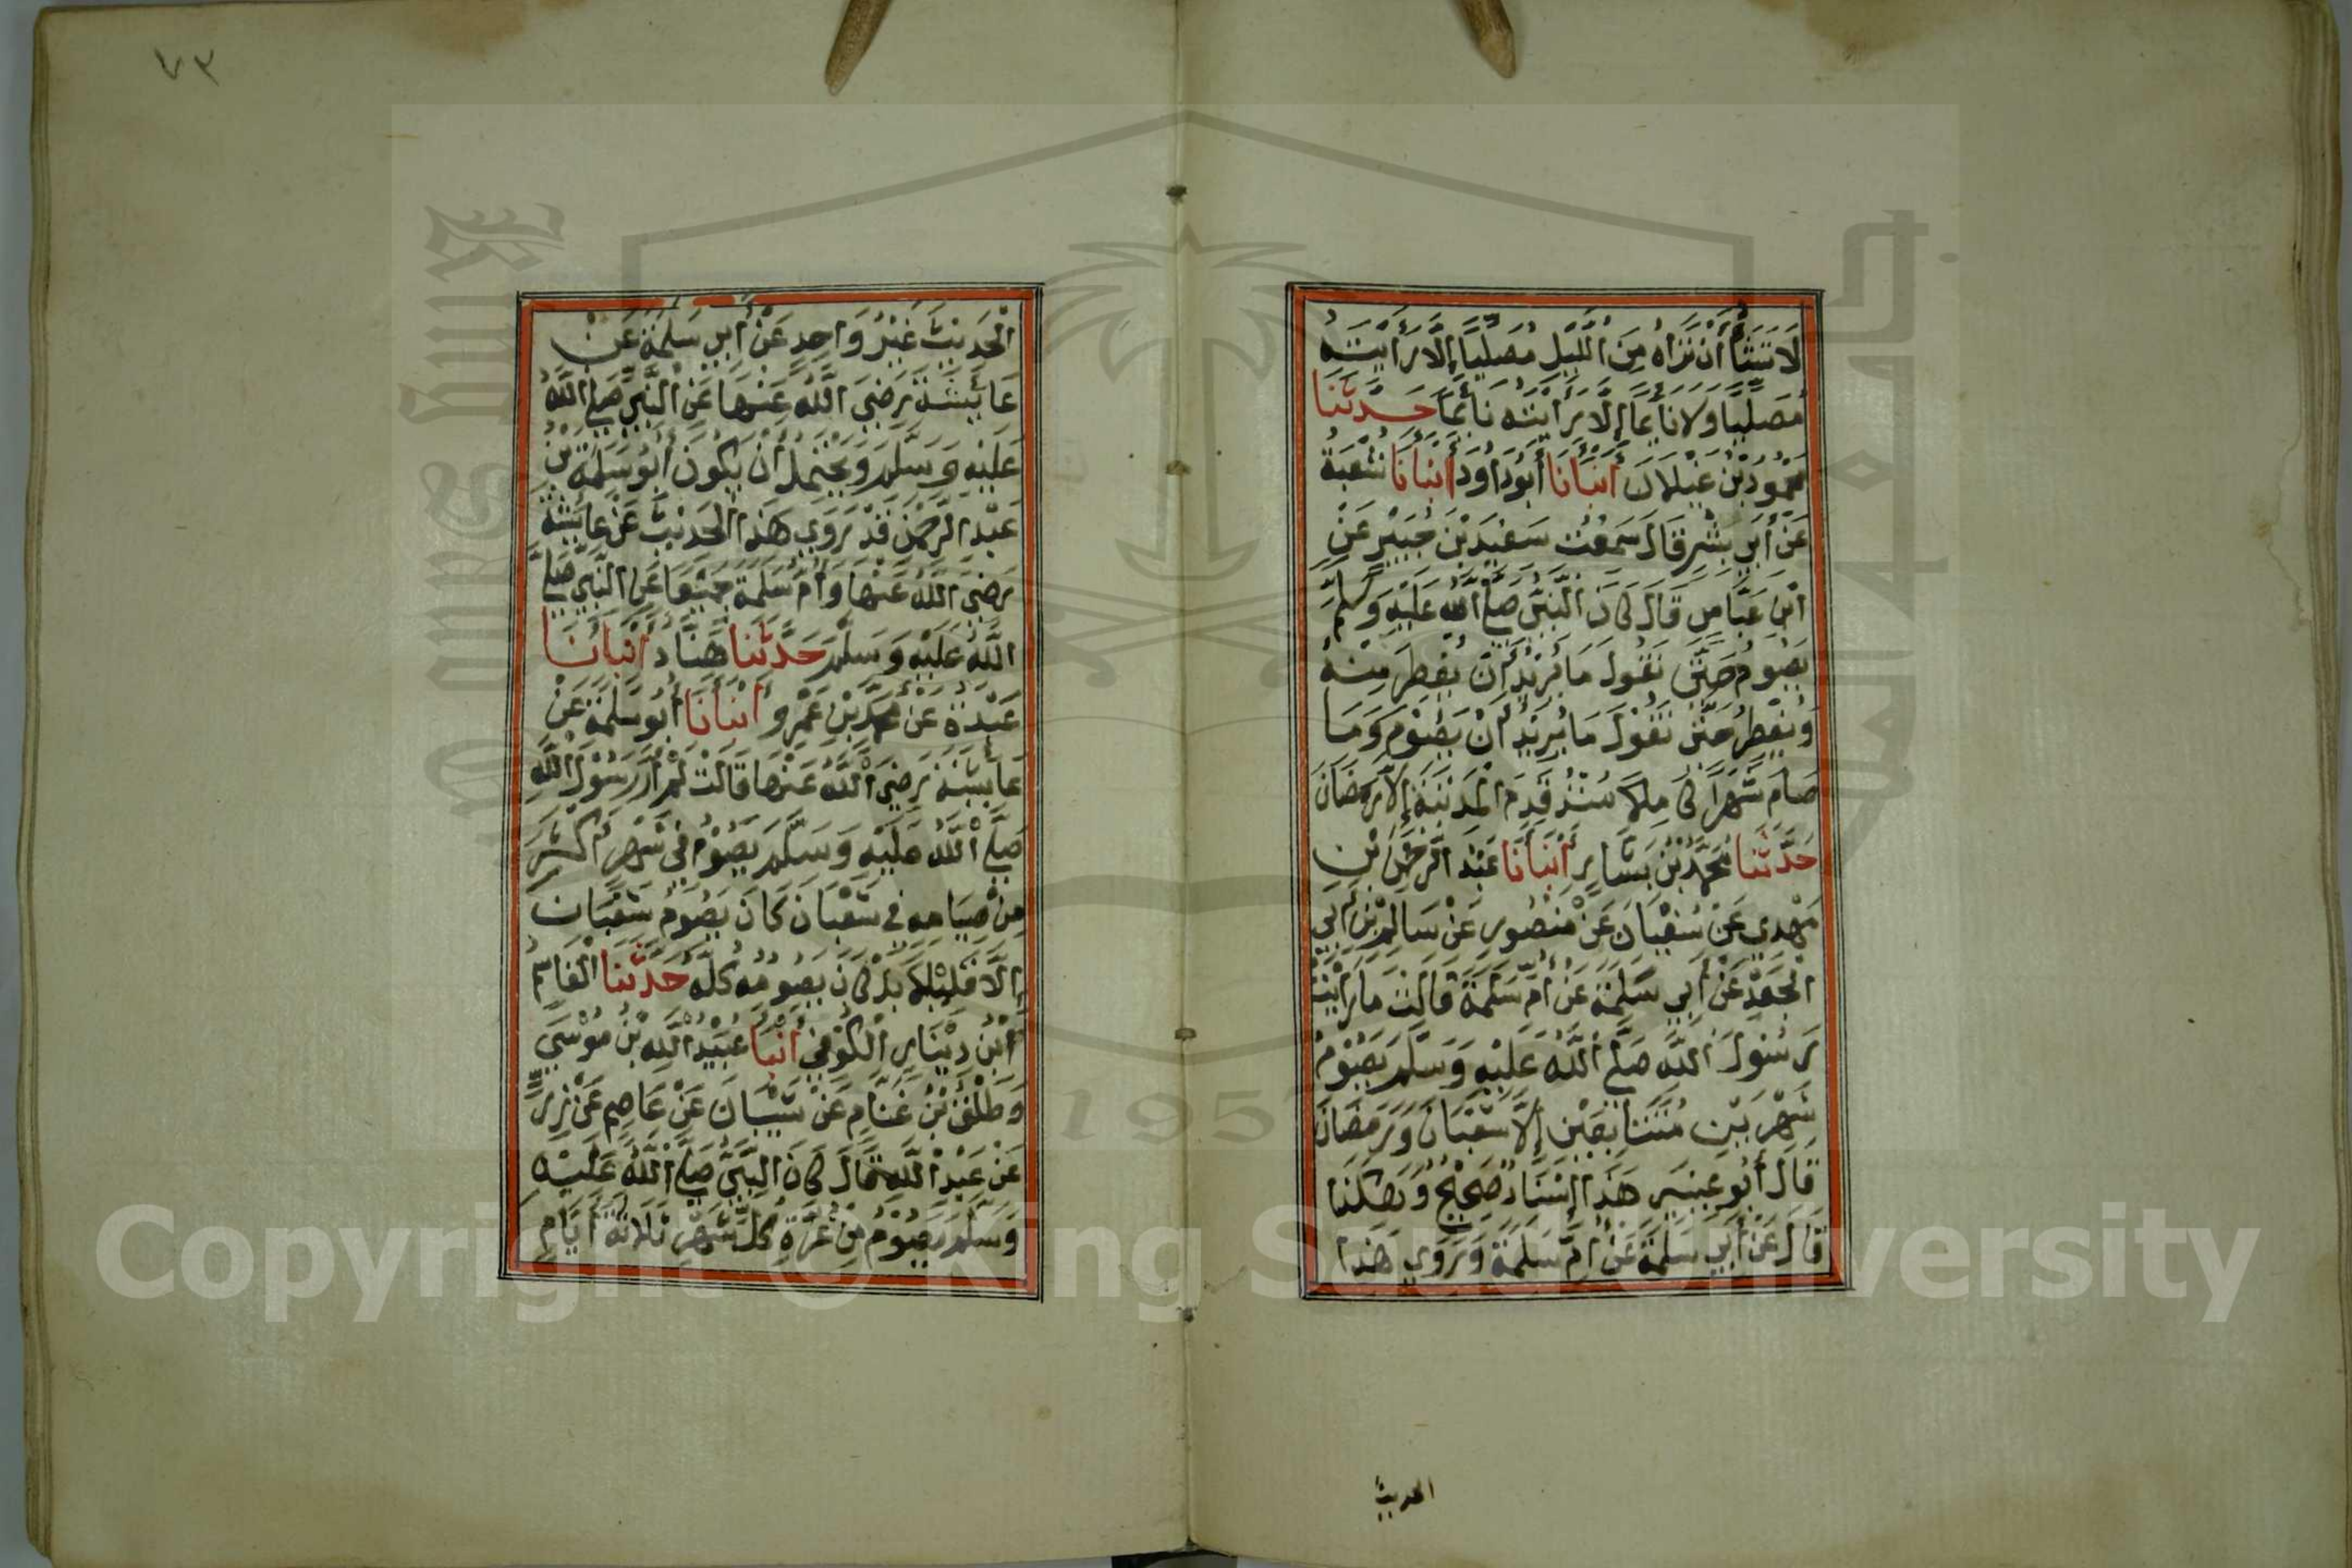 لَا تَشَأُ أَنْ تَرَاهُ مِنَ اللَّيْلِ مُصَلِّيًا إِلَّا رَأَيْتَهُ
مُصَلِّيًا وَلَا نَائِمًا إِلَّا رَأَيْتَهُ نَائِمًا حَدَّثَنَا
مَحْمُودُ بْنُ غَيْلَانَ أَنْبَأَنَا أَبُو دَاوُدَ أَنْبَأَنَا شُعْبَةُ
عَنْ أَبِي بِشْرٍ قَالَ سَمِعْتُ سَعِيدَ بْنَ جُبَيْرٍ عَنِ
ابْنِ عَبَّاسٍ قَالَ كَانَ النَّبِيُّ صَلَّى اللَّهُ عَلَيْهِ وَسَلَّمَ
يَصُومُ حَتَّى نَقُولَ مَا يُرِيدُ أَنْ يُفْطِرَ مِنْهُ
وَيُفْطِرُ حَتَّى نَقُولَ مَا يُرِيدُ أَنْ يَصُومَ وَمَا
صَامَ شَهْرًا كَامِلًا مُنْذُ قَدِمَ الْمَدِينَةَ إِلَّا رَمَضَانَ
حَدَّثَنَا مُحَمَّدُ بْنُ بَشَّارٍ أَنْبَأَنَا عَبْدُ الرَّحْمَنِ بْنِ
مَهْدِي عَنْ سُفْيَانَ عَنْ مَنْصُورٍ عَنْ سَالِمِ بْنِ أَبِي
الْجَعْدِ عَنْ أَبِي سَلَمَةَ عَنْ أُمِّ سَلَمَةَ قَالَتْ مَا رَأَيْتُ
رَسُولَ اللَّهِ صَلَّى اللَّهُ عَلَيْهِ وَسَلَّمَ يَصُومُ
شَهْرَيْنِ مُتَتَابِعَيْنِ إِلَّا شَعْبَانَ وَرَمَضَانَ
قَالَ أَبُو عِيسَى هَذَا إِسْنَادٌ صَحِيحٌ وَهَكَذَا
قَالَ عَنْ أَبِي سَلَمَةَ عَنْ أُمِّ سَلَمَةَ وَرَوَى هَذَا
الحديث
٧٣
الْحَدِيثَ غَيْرُ وَاحِدٍ عَنْ أَبِي سَلَمَةَ عَنْ
عَائِشَةَ رَضِيَ اللَّهُ عَنْهَا عَنِ النَّبِيِّ صَلَّى اللَّهُ
عَلَيْهِ وَسَلَّمَ وَيَحْتَمِلُ أَنْ يَكُونَ أَبُو سَلَمَةَ بْنُ
عَبْدِ الرَّحْمَنِ قَدْ رَوَى هَذَا الْحَدِيثَ عَنْ عَائِشَةَ
رَضِيَ اللَّهُ عَنْهَا وَأُمِّ سَلَمَةَ جَمِيعًا عَنِ النَّبِيِّ صَلَّى
اللَّهُ عَلَيْهِ وَسَلَّمَ حَدَّثَنَا هَنَّادٌ أَنْبَأَنَا
عَبْدَةُ عَنْ مُحَمَّدِ بْنِ عَمْرٍو أَنْبَأَنَا أَبُو سَلَمَةَ عَنْ
عَائِشَةَ رَضِيَ اللَّهُ عَنْهَا قَالَتْ لَمْ أَرَ رَسُولَ اللَّهِ
صَلَّى اللَّهُ عَلَيْهِ وَسَلَّمَ يَصُومُ فِي شَهْرٍ أَكْثَرَ
مِنْ صِيَامِهِ فِي شَعْبَانَ كَانَ يَصُومُ شَعْبَانَ
إِلَّا قَلِيلًا بَلْ كَانَ يَصُومُهُ كُلَّهُ حَدَّثَنَا الْقَاسِمُ
ابْنُ دِينَارٍ الْكُوفِيُّ أَنْبَأَ عُبَيْدُ اللَّهِ بْنُ مُوسَى
وَطَلْقُ بْنُ غَنَّامٍ عَنْ شَيْبَانَ عَنْ عَاصِمٍ عَنْ زِرٍّ
عَنْ عَبْدِ اللَّهِ قَالَ كَانَ النَّبِيُّ صَلَّى اللَّهُ عَلَيْهِ
وَسَلَّمَ يَصُومُ مِنْ غُرَّةِ كُلِّ شَهْرٍ ثَلَاثَةَ أَيَّامٍ
Copyright © King Saud University
1957